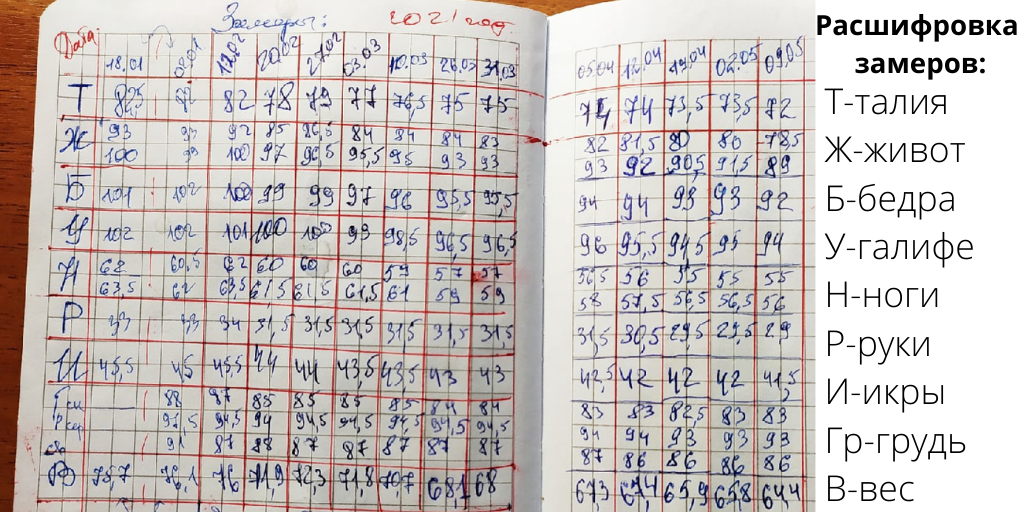 Замеры: 2021 год.
Дата: 18.01 12.02 20.02 27.02 03.03 10.03 26.03 31.03 05.04 12.04 19.04 02.05 09.05
Т 82,5 82 78 79 77 76,5 75 75 74 74 73,5 73,5 72
Ж 93 93 92 85 86,5 84 84 84 83 82 81,5 80 80 78,5
100 99 100 97 96,5 95,5 95 93 93 93 92 90,5 91,5 89
Б 101 102 100 99 99 97 96 95,5 95,5 94 94 93 93 92
У 102 102 101 100 100 99 98,5 96,5 96,5 96 95,5 94,5 95 94
Н 62 60,5 62 60 60 60 59 57 57 56,5 56 55 55 55
63,5 62 63,5 61,5 61,5 61,5 61 59 59 58 57,5 56,5 56,5 56
Р 33 33 34 31,5 31,5 31,5 31,5 31,5 31,5 31,5 30,5 29,5 29,5 29
И 45,5 45 45,5 44 44 43,5 43,5 43 43 42,5 42 42 42 41,5
Г 88 87 85 85 85 85 84 84 83 83 82,5 83 83
94,5 94 94,5 94,5 94,5 94,5 94,5 94 94 93 93 93
91 87 88 87 87 87 87 87 87 86 86 86 86
В 75,7 76,1 76 71,9 72,3 71,8 70,7 68,1 68 67,3 67,4 65,9 65,8 64,4
Расшифровка
замеров:
Т-талия
Ж-живот
Б-бедра
У-галифе
Н-ноги
Р-руки
И-икры
Гр-грудь
В-вес